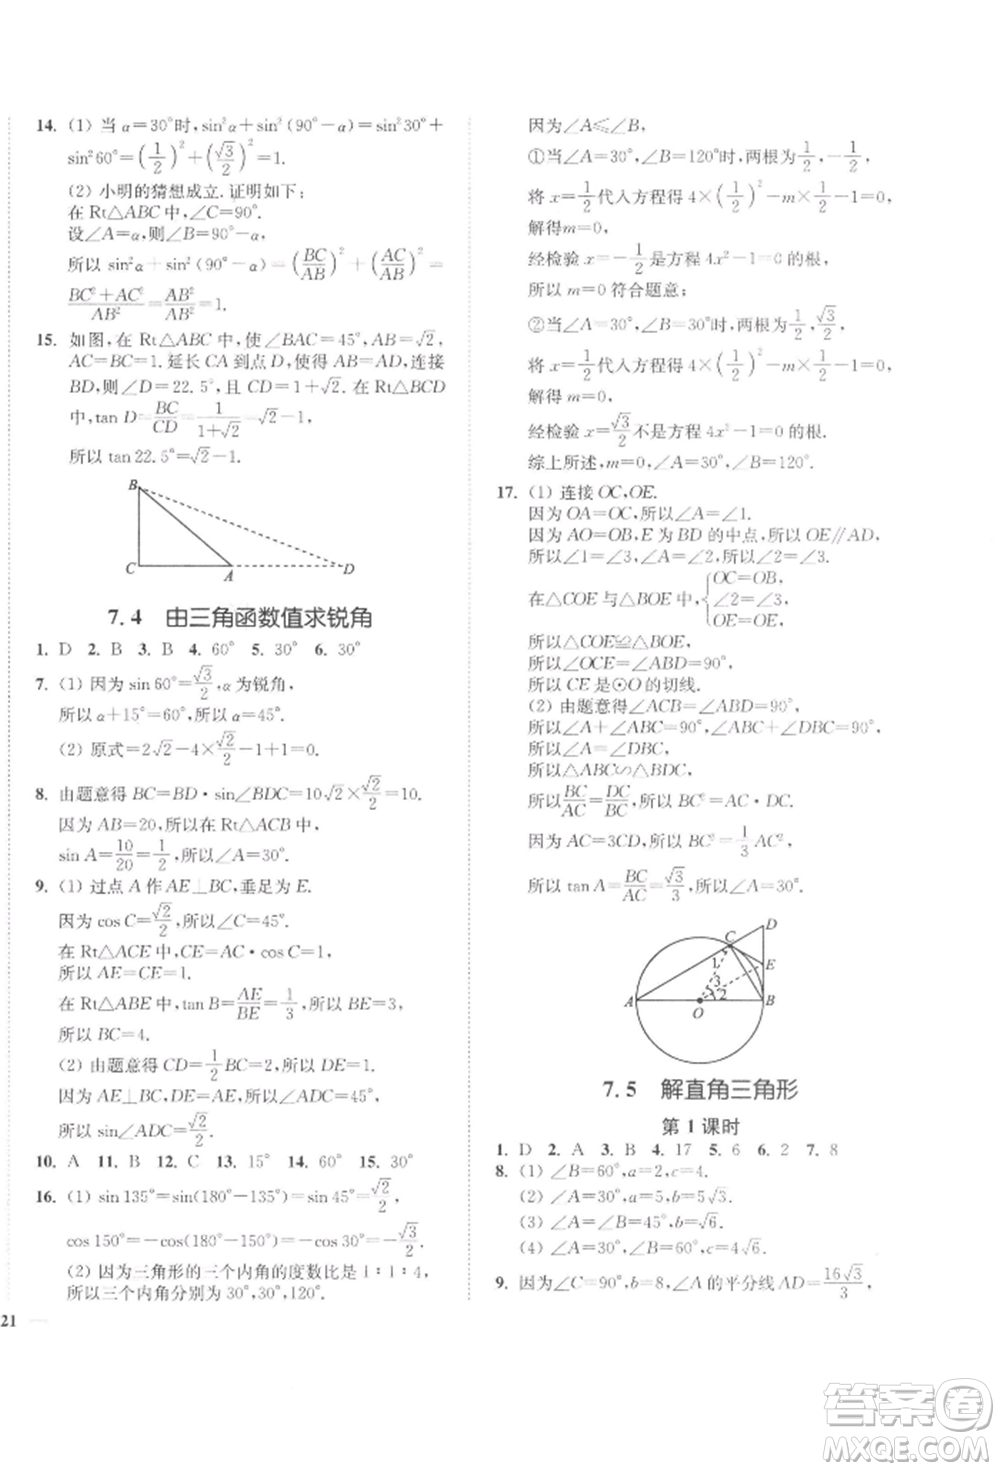 14. (1) 当 α=30°时, sin²α+sin²(90°-α)=sin²30°+
sin²60°=(1/2)²+(√3/2)²=1.
(2) 小明的猜想成立. 证明如下:
在 Rt△ABC 中, ∠C=90°.
设∠A=α, 则∠B=90°-α,
所以 sin²α+sin²(90°-α)=(BC/AB)²+(AC/AB)²=
(BC²+AC²)/AB²=AB²/AB²=1.
15. 如图, 在 Rt△ABC 中, 使∠BAC=45°, AB=√2,
AC=BC=1. 延长 CA 到点 D, 使得 AB=AD, 连接
BD, 则∠D=22.5°, 且 CD=1+√2. 在 Rt△BCD
中, tan D=BC/CD=1/(1+√2)=√2-1,
所以 tan 22.5°=√2-1.
B
C A D
7.4 由三角函数值求锐角
1. D 2. B 3. B 4. 60° 5. 30° 6. 30°
7. (1) 因为 sin 60°=√3/2, α 为锐角,
所以 α+15°=60°, 所以 α=45°.
(2) 原式=2√2-4×√2/2-1+1=0.
8. 由题意得 BC=BD·sin∠BDC=10√2×√2/2=10.
因为 AB=20, 所以在 Rt△ACB 中,
sin A=10/20=1/2, 所以∠A=30°.
9. (1) 过点 A 作 AE⊥BC, 垂足为 E.
因为 cos C=√2/2, 所以∠C=45°.
在 Rt△ACE 中, CE=AC·cos C=1,
所以 AE=CE=1.
在 Rt△ABE 中, tan B=AE/BE=1/3, 所以 BE=3,
所以 BC=4.
(2) 由题意得 CD=1/2BC=2, 所以 DE=1.
因为 AE⊥BC, DE=AE, 所以∠ADC=45°,
所以 sin∠ADC=√2/2.
10. A 11. B 12. C 13. 15° 14. 60° 15. 30°
16. (1) sin 135°=sin(180°-135°)=sin 45°=√2/2,
cos 150°=-cos(180°-150°)=-cos 30°=-√3/2.
(2) 因为三角形的三个内角的度数比是 1:1:4,
所以三个内角分别为 30°, 30°, 120°.
21
因为∠A≤∠B,
①当∠A=30°, ∠B=120°时, 两根为1/2, -1/2,
将 x=1/2代入方程得 4×(1/2)²-m×1/2-1=0,
解得m=0,
经检验 x=-1/2是方程 4x²-1=0 的根,
所以 m=0 符合题意;
②当∠A=30°, ∠B=30°时, 两根为1/2, √3/2,
将 x=1/2代入方程得 4×(1/2)²-m×1/2-1=0,
解得 m=0,
经检验 x=√3/2不是方程 4x²-1=0 的根.
综上所述, m=0, ∠A=30°, ∠B=120°.
17. (1) 连接 OC, OE.
因为 OA=OC, 所以∠A=∠1.
因为 AO=OB, E 为 BD 的中点, 所以 OE∥AD,
所以∠1=∠3, ∠A=∠2, 所以∠2=∠3.
在△COE 与△BOE 中, {OC=OB, ∠2=∠3, OE=OE,
所以△COE≌△BOE,
所以∠OCE=∠OBE=90°,
所以 CE 是⊙O 的切线.
(2) 由题意得∠ACB=∠ABD=90°,
所以∠A+∠ABC=90°, ∠ABC+∠DBC=90°,
所以∠A=∠DBC,
所以△ABC∽△BDC,
所以BC/AC=DC/BC, 所以 BC²=AC·DC.
因为 AC=3CD, 所以 BC²=1/3AC²,
所以 tan A=BC/AC=√3/3, 所以∠A=30°.
D
C
E
1
3
2
A O B
7.5 解直角三角形
第 1 课时
1. D 2. A 3. B 4. 17 5. 6 6. 2 7. 8
8. (1) ∠B=60°, a=2, c=4.
(2) ∠A=30°, a=5, b=5√3.
(3) ∠A=∠B=45°, b=√6.
(4) ∠A=30°, b=√6, c=2√2.
9. 因为∠C=90°, b=8, ∠A 的平分线 AD=16√3/3,
答案圈
MXQE.COM